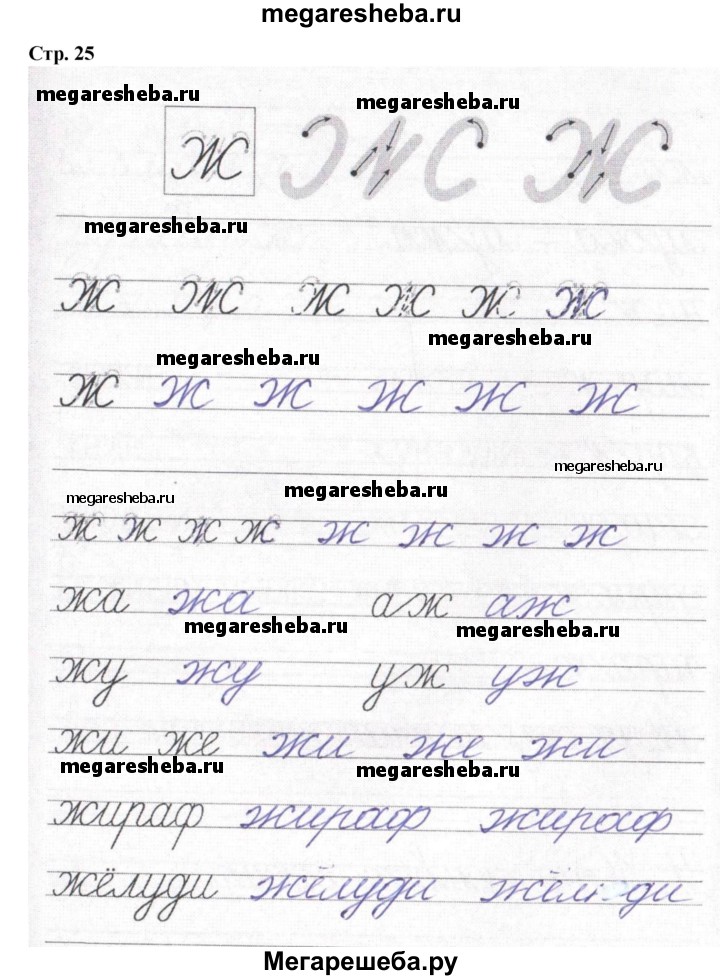 megaresheba.ru
Стр. 25
megaresheba.ru
megaresheba.ru
Ж Ж Ж
megaresheba.ru
Ж Ж Ж Ж Ж Ж
megaresheba.ru
megaresheba.ru
Ж Ж Ж Ж Ж Ж
megaresheba.ru
megaresheba.ru
megaresheba.ru
ж ж ж ж ж ж ж ж
жа жа аж аж
megaresheba.ru
megaresheba.ru
жу жу уж уж
жи же жи же жи
megaresheba.ru
megaresheba.ru
жираф жираф жираф
жёлуди жёлуди жёлуди
Мегарешеба.ру